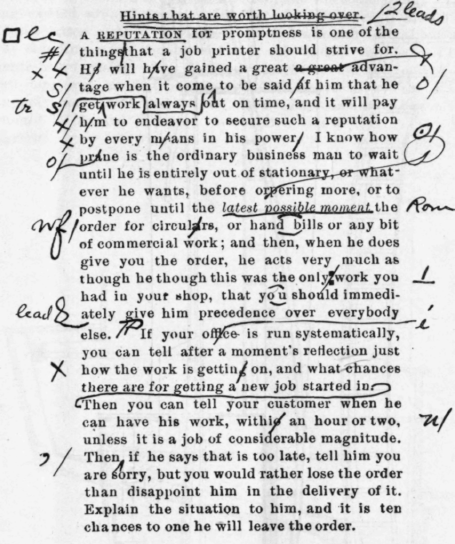 Hints that are worth looking over. 2 leads
lc A REPUTATION for promptness is one of the
#/ things that a job printer should strive for.
x x He will have gained a great a great advan- x
S/ tage when it come to be said of him that he o/
tr S/ get work always out on time, and it will pay
x/ him to endeavor to secure such a reputation
x by every means in his power I know how
o/ prane is the ordinary business man to wait
until he is entirely out of stationary, or what-
ever he wants, before orpering more, or to
postpone until the latest possible moment the Rom
wf/ order for circulars, or hand bills or any bit
of commercial work; and then, when he does
give you the order, he acts very much as
though he though this was the only work you
had in your shop, that you should immedi-
lead ately give him precedence over everybody i
else. If your office is run systematically,
you can tell after a moment's reflection just
x how the work is getting on, and what chances
there are for getting a new job started in.
Then you can tell your customer when he
can have his work, within an hour or two, n/
unless it is a job of considerable magnitude.
,/ Then if he says that is too late, tell him you
are sorry, but you would rather lose the order
than disappoint him in the delivery of it.
Explain the situation to him, and it is ten
chances to one he will leave the order.